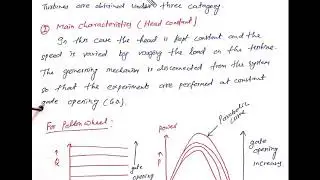 Turbines are obtained under three category.
① Main characteristics (Head constant)
In this case the head is kept constant and the
speed is varied by varying the load on the turbine.
The governing mechanism is disconnected from the system
so that the experiment are performed at constant
gate opening (G.O.)
For Pelton wheel:
Parabolic curve
power
gate opening
gate opening increasing
Q
P